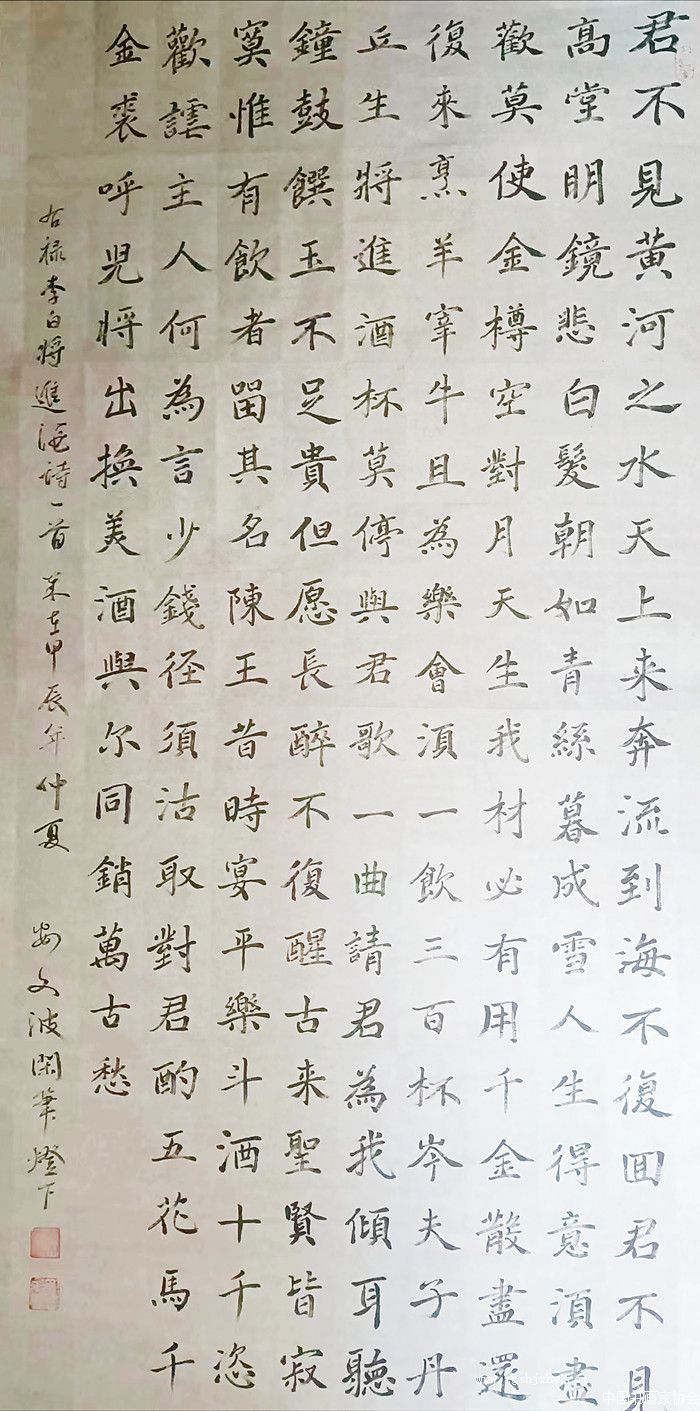 君不見黃河之水天上来奔流到海不復回君不見
高堂明鏡悲白髮朝如青絲暮成雪人生得意須盡
歡莫使金樽空對月天生我材必有用千金散盡還
復來烹羊宰牛且為樂會須一飲三百杯岑夫子丹
丘生將進酒杯莫停與君歌一曲請君為我傾耳聽
鐘鼓饌玉不足貴但愿長醉不復醒古来聖賢皆寂
寞惟有飲者留其名陳王昔時宴平樂斗酒十千恣
歡謔主人何為言少錢径須沽取對君酌五花馬千
金裘呼児將出換美酒與尔同銷萬古愁
右禄李白将進酒詩一首 甲辰年仲夏
文波閑筆燈下
中国书画家协会